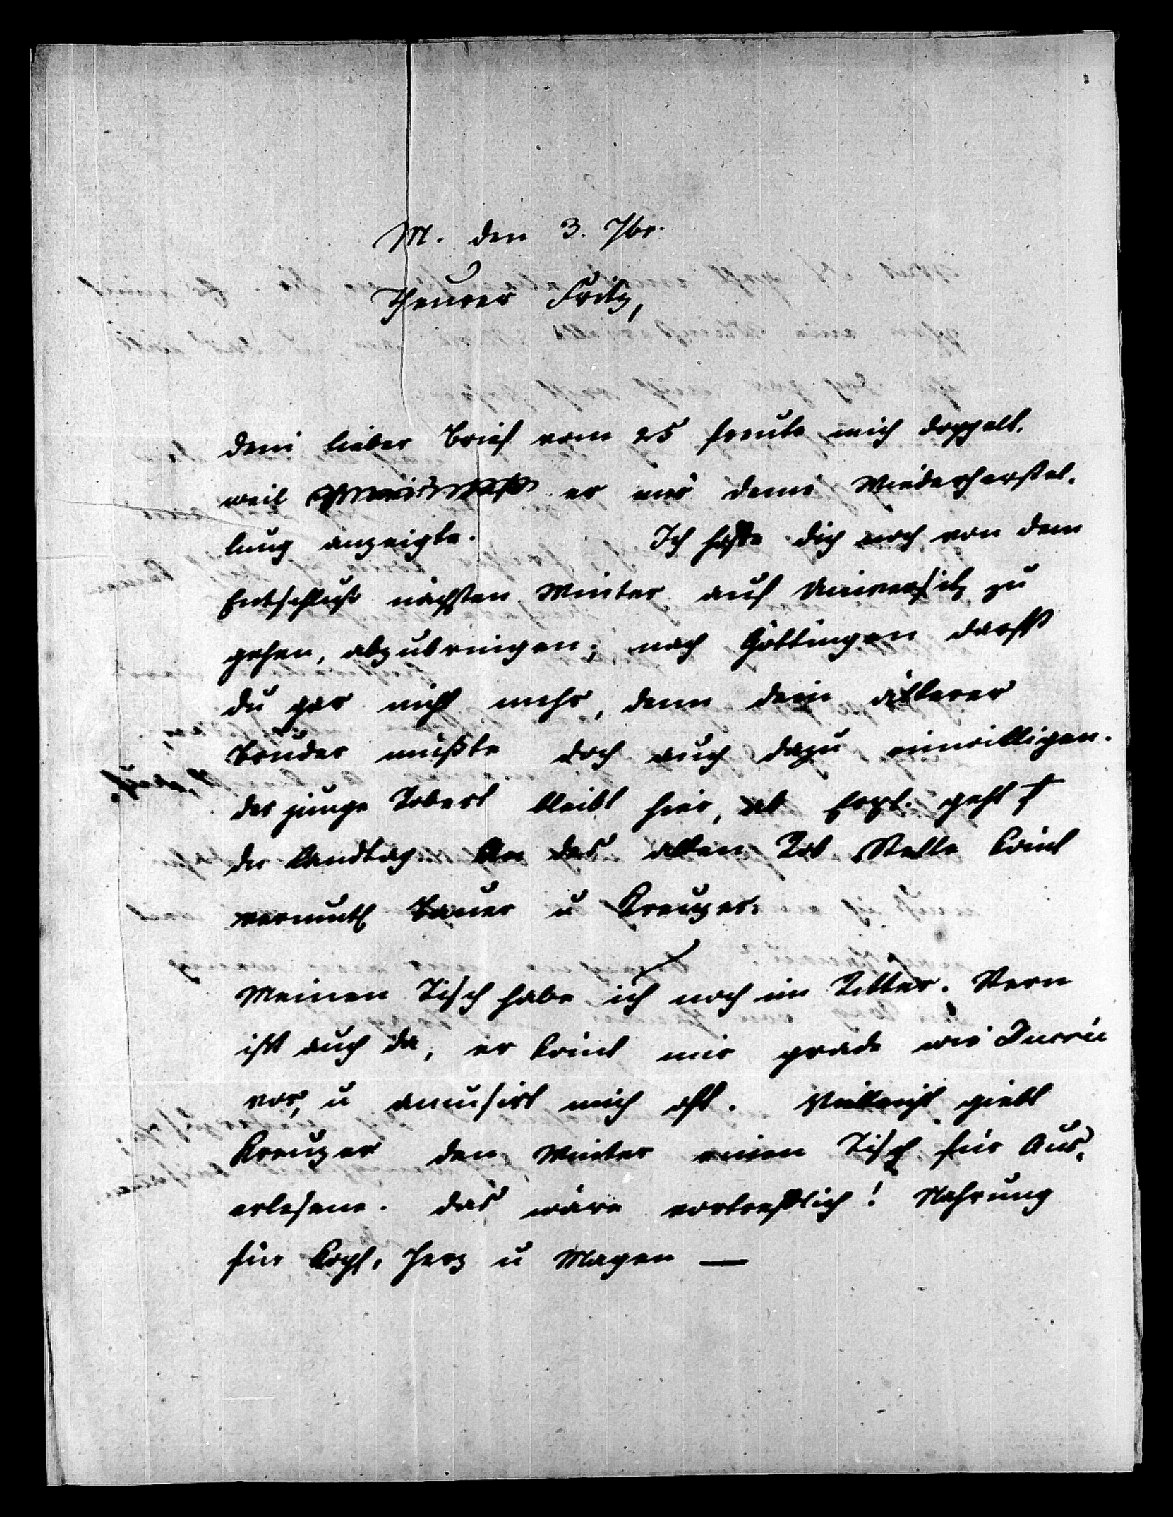 M. den 3. 7br.
Theurer Fritz,
dein lieber Brief vom 25 freute mich doppelt.
weil er mir deine Wiederherstel-
lung anzeigte. Ich hoffe dich noch von dem
Entschluß nächsten Winter auf Universität zu
gehen, abzubringen; nach Göttingen darfst
du gar nicht mehr, denn dein älterer
Bruder müßte doch auch dazu einwilligen.
der junge Robert bleibt hier, geht
der Landtag. An des alten Rob Stelle komt
vermuth Bauer u Kreuzer.
Meinen Tisch habe ich noch im Ritter. Stern
ist auch da, er komt mir grade wie
vor, u amusirt mich oft. Vielleicht giebt
Kreuzer den Winter einen Tisch für Aus-
erlesene. das wäre vortreflich! Nahrung
für Kopf, Herz u Magen —